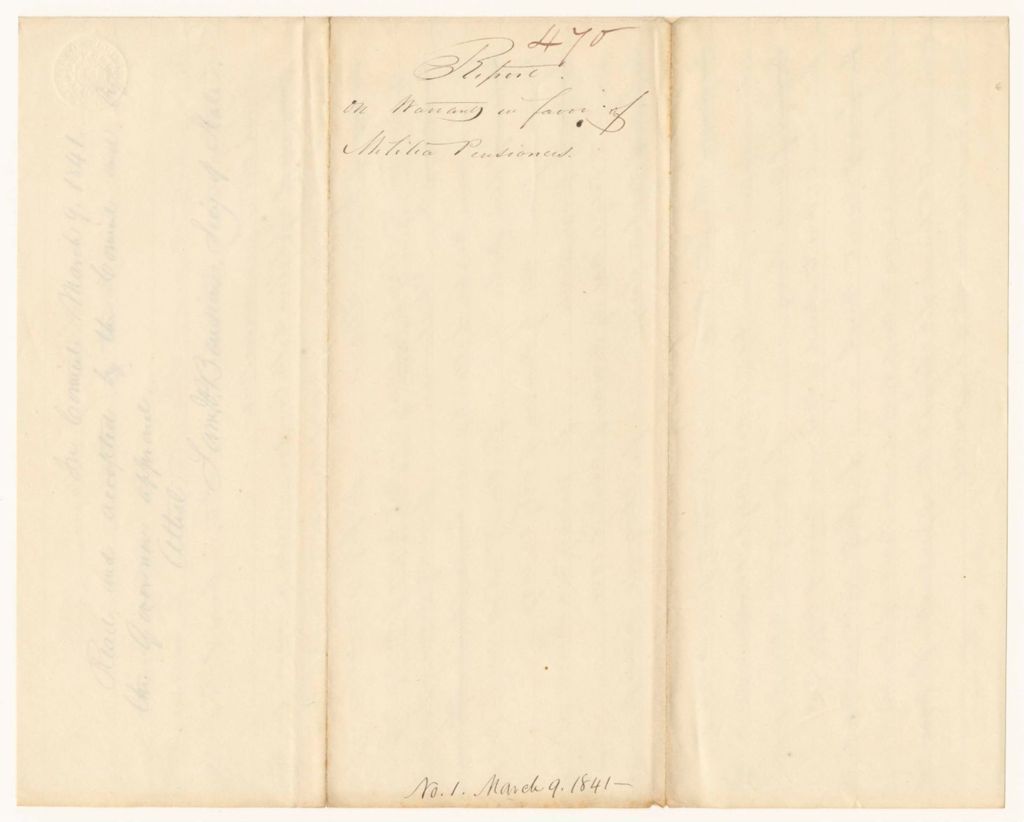 470
Report.
on Warrants in favor of
Militia Pensioners.
No. 1. March 9. 1841—
In Council March 9. 1841
Read and accepted by the Council and by
the Governor approved.
Attest
Secy of State.